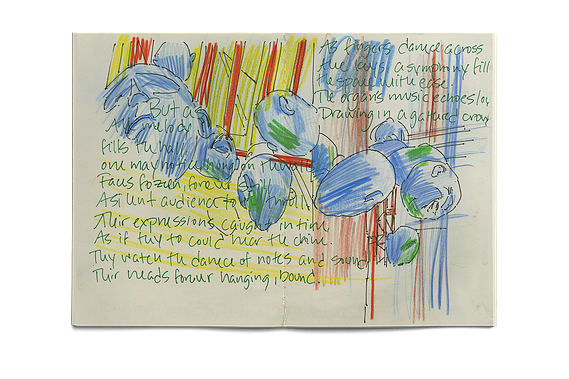 As fingers dance across
the keys, a symphony fill
the space with ease.
The organs music echoes
Drawing in a gathered crow
But as
the melody
fills the hall
one may notice
Faces frozen, forever still
A silent audience to
Their expressions, caught in time
As if they to could hear the chime.
They watch the dance of notes and sound
Their heads forever hanging, bound.